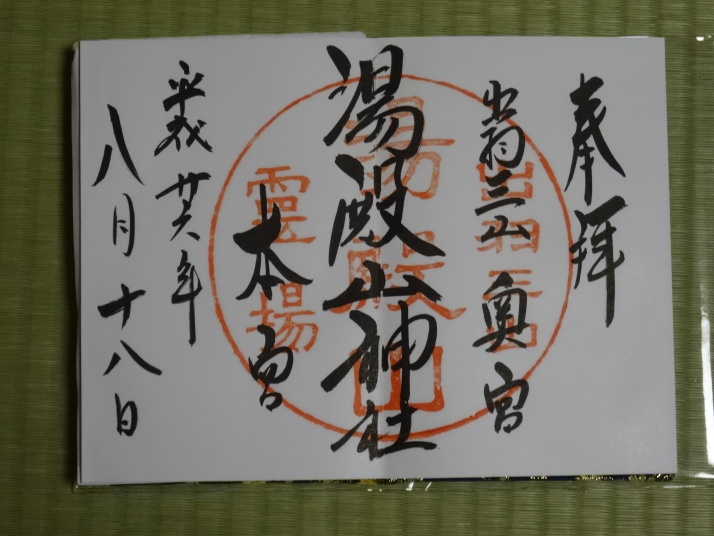 奉拝
出羽三山 奥宮
湯殿山神社
本宮
平成廿六年
八月十八日
出羽三山
湯殿山
霊場